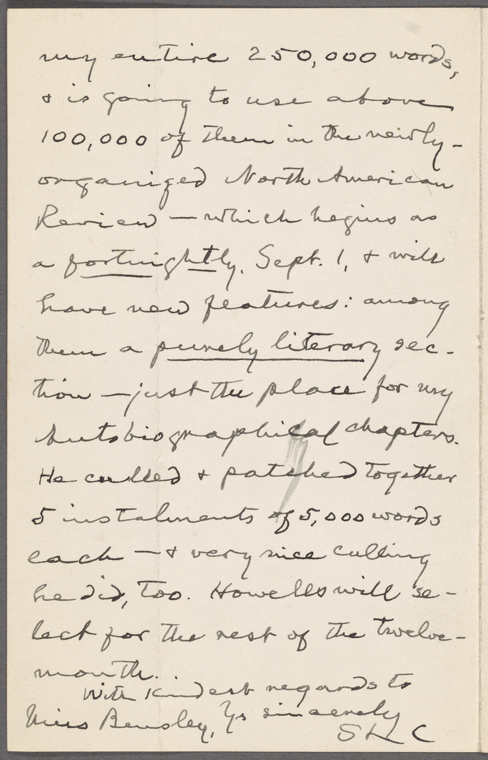 my entire 250,000 words,
& is going to use above
100,000 of them in the newly-
organized North American
Review — which begins as
a fortnightly, Sept. 1, & will
have new features: among
them a purely literary sec-
tion — just the place for my
Autobiographical chapters.
He culled & patched together
5 instalments of 5,000 words
each — & very nice culling
he did, too. Howells will se-
lect for the rest of the twelve-
month.
With kindest regards to
Miss Bensley, Ys sincerely
SLC